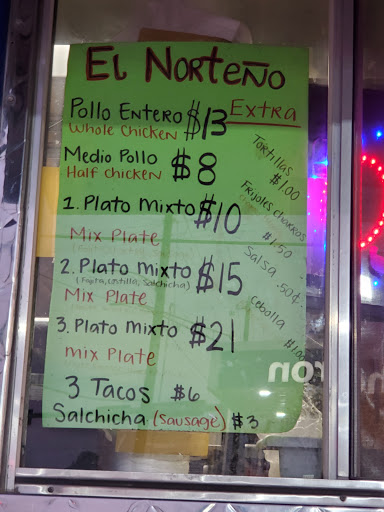 El Norteño
Pollo Entero $13
Whole Chicken
Medio Pollo $8
Half Chicken
1. Plato Mixto $10
Mix Plate
2. Plato Mixto $15
(Fajita, costilla, Salchicha)
Mix Plate
3. Plato Mixto $21
mix Plate
3 Tacos $6
Salchicha (Sausage) $3
Extra
Tortillas
$1.00
Frijoles charros
$1.50
Salsa .50¢
Cebolla
$1.00